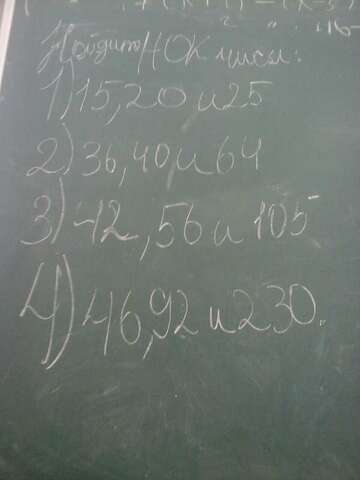 Найдите НОК чисел:
1) 15, 20 и 25
2) 36, 40 и 64
3) 42, 56 и 105
4) 46, 92 и 230.